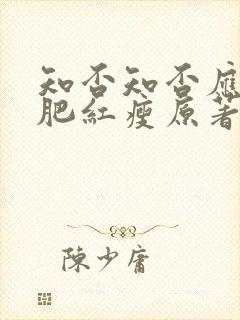 知否知否應
肥紅瘦原著
陳少庸